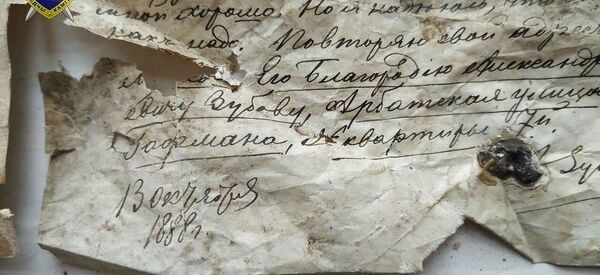 хороша. Но я
какъ надо. Повторяю свой адрес
Его Благородію Александр
евичу Зубову, Арбатская улица
Гофмана, № квартиры 7й.
13 Октября
1888 г.